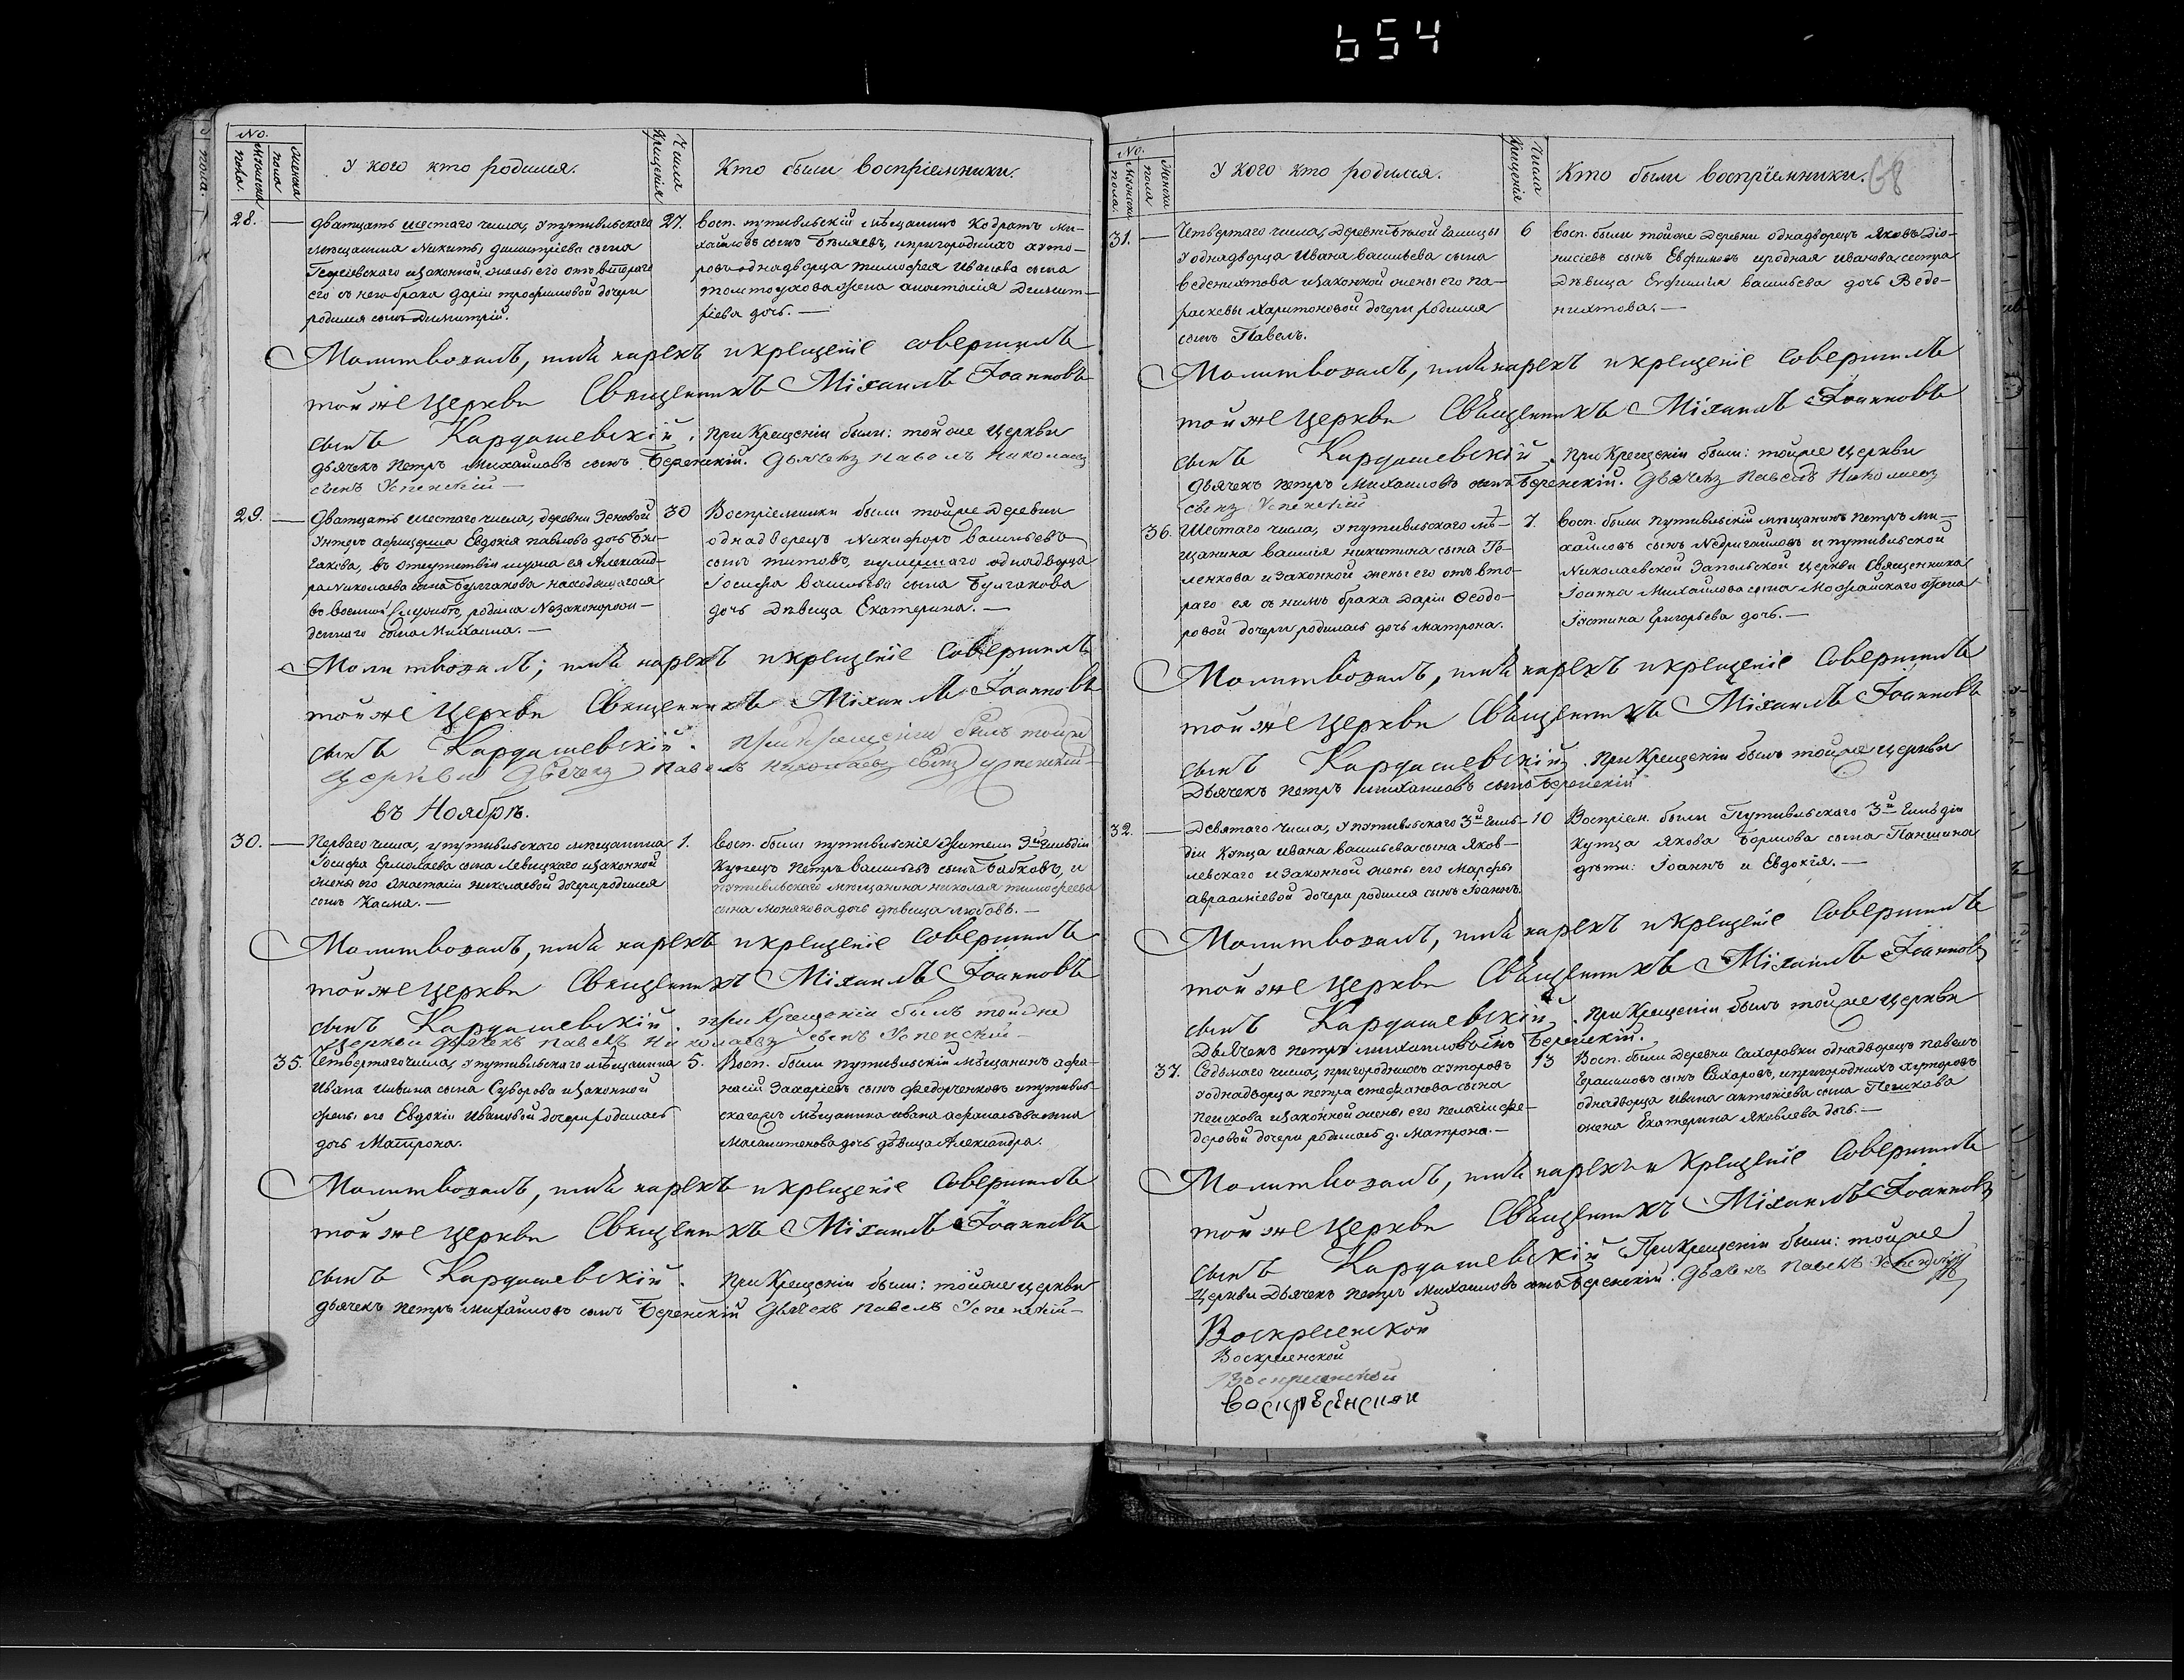 654
No.
Мужеска пола.
Женска пола
У кого кто родился.
Числа Крещенія
Кто были воспріемники.
28. — Дватцать шестаго числа, у путивльскаго
мещанина Никиты Димитріева сына
Георгіевскаго и законной жены его отъ втораго
его съ нею брака Даріи Трофимовой дочери
родился сынъ Димитрій.
27. Восп. путивльскій мѣщанинъ Кодратъ Ми-
хайловъ сынъ Бѣляевъ, и пригородныхъ хуто-
ровъ однадворца Тимофея Иванова сына
жена Анастасія Димит-
ріева дочь. —
Молитвовалъ, имя нарекъ и крещеніе совершилъ
той же Церкви Священникъ Міхаилъ Іоанновъ
сынъ Кардашевскій. При Крещеніи были: той же Церкви
дьячекъ Петръ Михайловъ сынъ Беренскій. Дьячекъ Павелъ Николаевъ
сынъ Успенскій —
29. — Дватцать шестаго числа, деревни Зеновой
унтеръ афицерша Евдокія Павлова дочь Бул-
гакова, въ отсутствіи мужа ея Александ-
ра Николаева сына Булгакова находящагося
во военной службѣ, родила Незаконорож-
деннаго сына Михаила. —
30 Воспріемники были той же деревни
однадворецъ Никифоръ Васильевъ
сынъ Титовъ, и умершаго однадворца
Іосифа Васильева сына Булгакова
дочь дѣвица Екатерина. —
Молитвовалъ; имя нарекъ и крещеніе Совершилъ
той же Церкви Священникъ Міхаилъ Іоанновъ
сынъ Кардашевскій. При крещеніи былъ той же
церкви дьячекъ Павелъ Николаевъ сынъ Успенскій
въ Ноябрѣ.
30. — Перваго числа, у путивльскаго мещанина
Іосифа Ермолаева сына Левицкаго и законной
жены его Анастасіи Николаевой дочери родился
сынъ Касма. —
1. Восп. были путивльскіе жители 3й Гильдіи
Купецъ Петръ Васильевъ сынъ Бабковъ, и
путивльскаго мещанина Николая Тимофеева
сына дочь дѣвица Любовь. —
Молитвовалъ, имя нарекъ и крещеніе Совершилъ
той же Церкви Священникъ Міхаилъ Іоанновъ
сынъ Кардашевскій. При Крещеніи былъ той же
церкви дьячекъ Павелъ Николаевъ сынъ Успенскій —
35. Четвертаго числа, у путивльскаго мѣщанина
Ивана сына Суворова и законной
жены его Евдокіи Ивановой дочери родилась
дочь Матрона.
5. Восп. были путивльскій мѣщанинъ Афа-
насій Захаріевъ сынъ Федорченковъ и путивль-
скаго мѣщанина Ивана Афанасьева сына
дочь дѣвица Александра.
Молитвовалъ, имя нарекъ и крещеніе Совершилъ
той же Церкви Священникъ Міхаилъ Іоанновъ
сынъ Кардашевскій. При Крещеніи были: той же церкви
дьячекъ Петръ Михайловъ сынъ Беренскій Дьячекъ Павелъ Успенскій —
No.
Мужеска пола.
Женска пола
У кого кто родился.
Числа Крещенія
Кто были воспріемники.
68
31. — Четвертаго числа, деревни Бѣлой Галицы
у однадворца Ивана Васильева сына
Веденихтова и законной жены его Па-
расковы Харитоновой дочери родился
сынъ Павелъ.
6 Восп. были той же деревни однадворецъ Яковъ Діо-
нисіевъ сынъ Евфимовъ и родная Иванова сестра
дѣвица Евфимія Васильева дочь Веде-
нихтова. —
Молитвовалъ, имя нарекъ и крещеніе Совершилъ
той же Церкви Священникъ Міхаилъ Іоанновъ
сынъ Кардашевскій. При Крещеніи были: той же церкви
дьячекъ Петръ Михайловъ сынъ Беренскій. Дьячекъ Павелъ Николаевъ
сынъ Успенскій
36. Шестаго числа, у путивльскаго мѣ-
щанина Василія Никитина сына Го-
ленкова и законной жены его отъ вто-
раго ея съ нимъ брака Даріи Ѳеодо-
ровой дочери родилась дочь Матрона.
7. Восп. были путивльскій мѣщанинъ Петръ Ми-
хайловъ сынъ Недригайловъ и путивльской
Николаевской Запольской церкви Священника
Іоанна Михайлова сына Можайскаго жена
Іустина Григорьева дочь. —
Молитвовалъ, имя нарекъ и крещеніе Совершилъ
той же церкви Священникъ Міхаилъ Іоанновъ
сынъ Кардашевскій. При Крещеніи былъ той же церкви
Дьячекъ Петръ Михаиловъ сынъ Беренскій
32. — Девятаго числа, у путивльскаго 3й Гиль-
діи Купца Ивана Васильева сына Яков-
левскаго и законной жены его Марфы
Авраміевой дочери родился сынъ Іоаннъ.
10 Воспріем. были Путивльскаго 3й Гильдіи
купца Якова Борисова сына Паншина
дѣти: Іоаннъ и Евдокія. —
Молитвовалъ, имя нарекъ и крещеніе Совершилъ
той же Церкви Священникъ Міхаилъ Іоанновъ
сынъ Кардашевскій. При Крещеніи былъ той же церкви
Дьячекъ Петръ Михаиловъ сынъ Беренскій.
37. Седьмаго числа, пригородныхъ хуторовъ
у однадворца Петра Стефанова сына
Пешкова и законной жены его Пелагіи Фе-
доровой дочери родилась д. Матрона. —
13 Восп. были деревни Сахаровки однадворецъ Павелъ
Герасимовъ сынъ Сахаровъ, и пригородныхъ хуторовъ
однадворца Ивана Антоніева сына Пешкова
жена Екатерина Яковлева дочь. —
Молитвовалъ, имя нарекъ и Крещеніе Совершилъ
той же Церкви Священникъ Міхаилъ Іоанновъ
сынъ Кардашевскій При Крещеніи были: той же
Церкви Дьячекъ Петръ Михаиловъ сынъ Беренскій. Дьячекъ Павелъ Успенскій
Воскресенской
Воскресенской
Воскресенской
Воскресенской